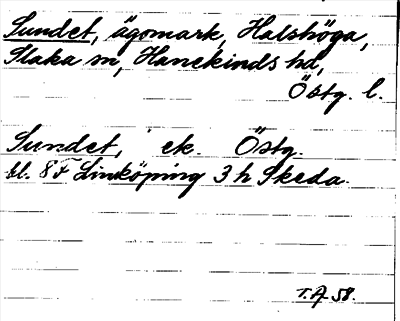 Sundet, ägomark, Halshöga,
Slaka sn, Hanekinds hd,
Östg. l.
Sundet, ek. Östg.
bl. 8F Linköping 3 h Skeda.
T.A. 58.